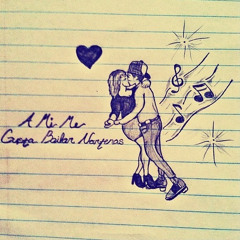 A Mi Me
Gusta Bailar Nortenas